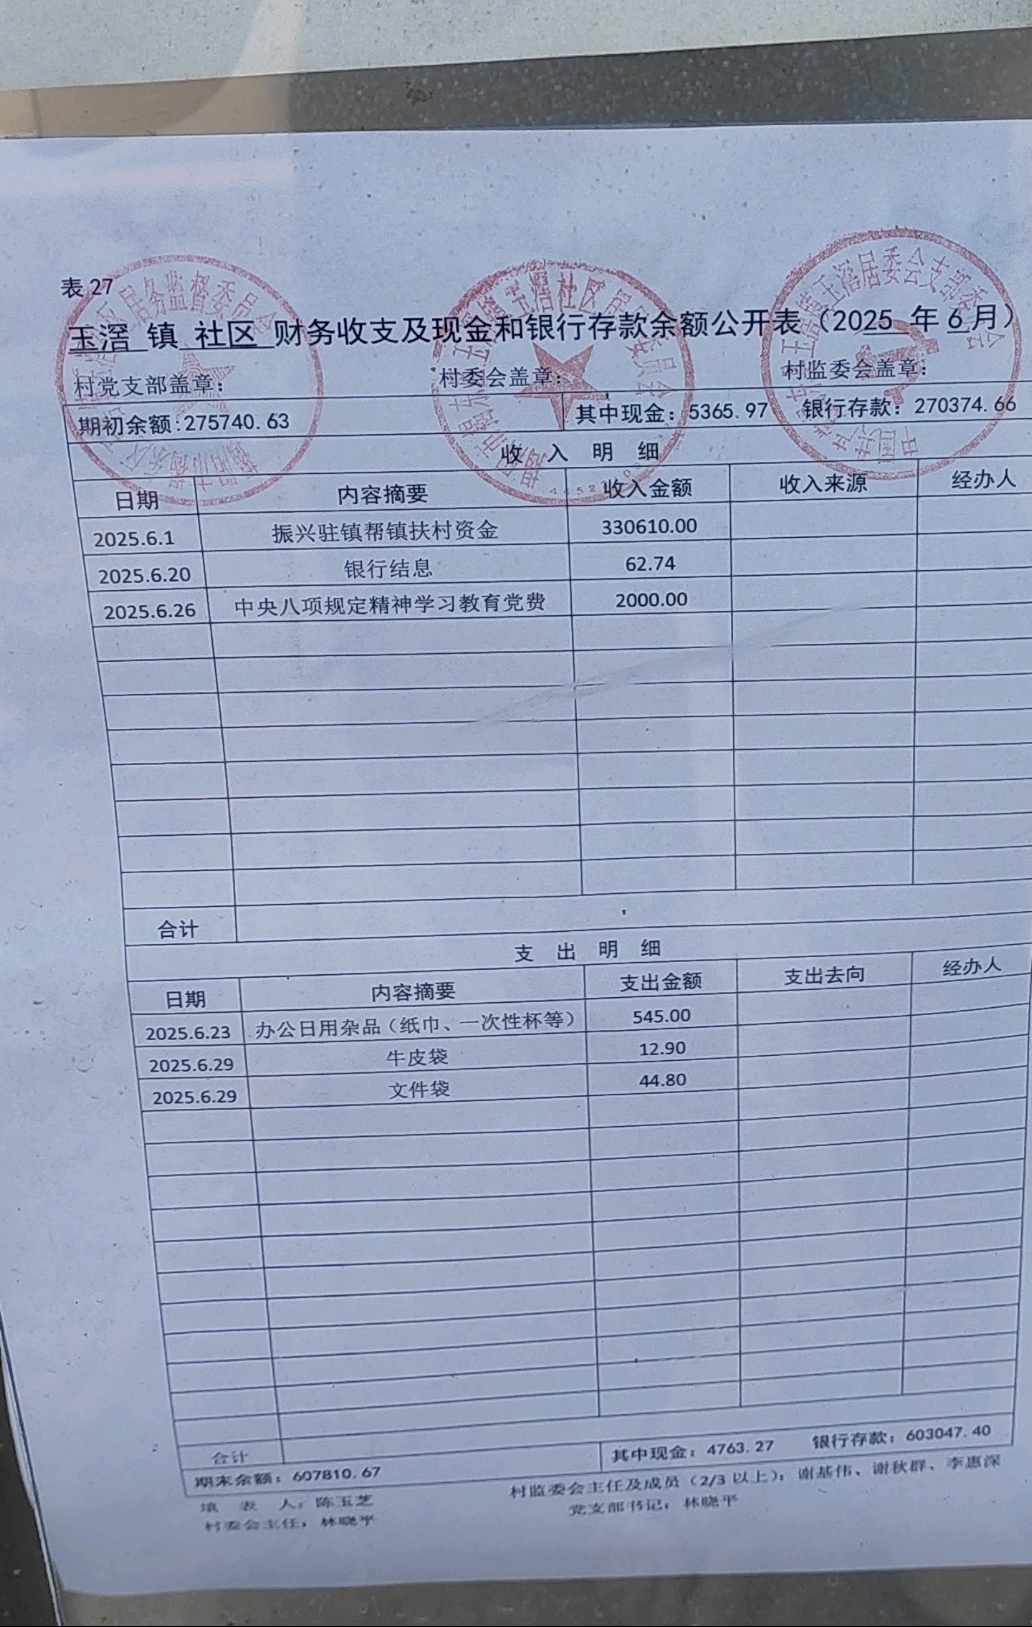 表 27
玉滘 镇 社区 财务收支及现金和银行存款余额公开表（2025 年 6 月）
村党支部盖章： 村委会盖章： 村监委会盖章：
期初余额:275740.63 其中现金：5365.97 银行存款：270374.66
收 入 明 细
日期 内容摘要 收入金额 收入来源 经办人
2025.6.1 振兴驻镇帮镇扶村资金 330610.00
2025.6.20 银行结息 62.74
2025.6.26 中央八项规定精神学习教育党费 2000.00
合计
支 出 明 细
日期 内容摘要 支出金额 支出去向 经办人
2025.6.23 办公日用杂品（纸巾、一次性杯等） 545.00
2025.6.29 牛皮袋 12.90
2025.6.29 文件袋 44.80
合计
期末余额：607810.67 其中现金：4763.27 银行存款：603047.40
填 表 人：陈玉芝 村监委会主任及成员（2/3 以上）：谢基伟、谢秋群、李惠深
村委会主任：林晓平 党支部书记：林晓平